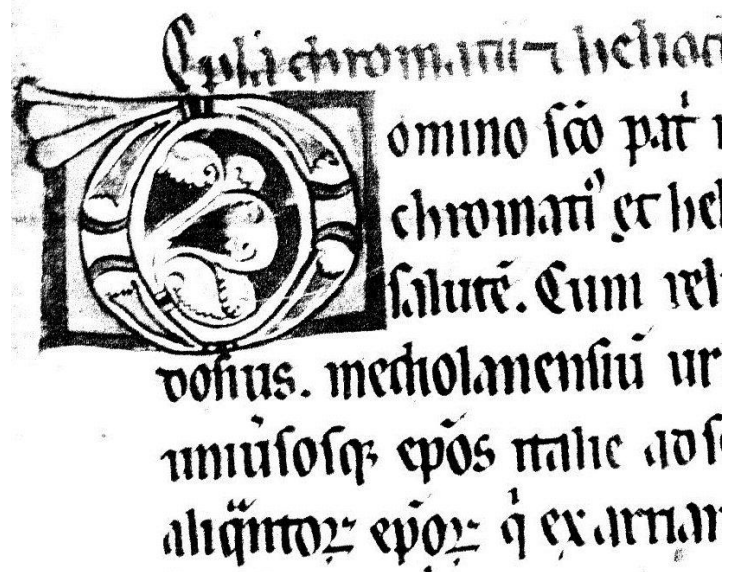 Epl̃a chromatii ⁊ heliod
Domino sc̃o pat̉ 
chromati᷒ et hel
salutẽ. Cum rel
dosius. mediolanensiũ ur
uniũsosq; ep̃os italie ad s
aliq̈ntoꝝ ep̃oꝝ q̉ ex arrian